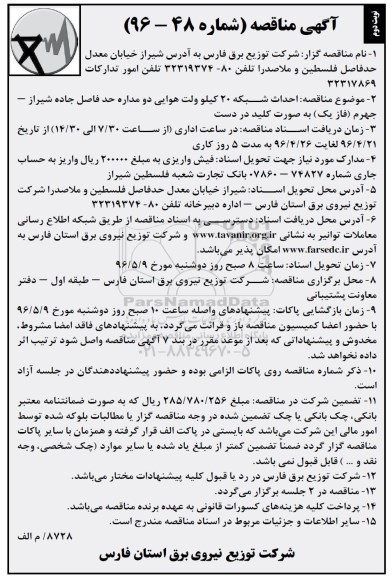 نوبت دوم
آگهی مناقصه (شماره ۴۸ – ۹۶)
۱- نام مناقصه گزار: شرکت توزیع برق فارس به آدرس شیراز خیابان معدل
حدفاصل فلسطین و ملاصدرا تلفن ۸۰- ۳۲۳۱۹۳۷۴ تلفن امور تدارکات
۳۲۳۱۷۸۶۹
۲- موضوع مناقصه: احداث شبکه ۲۰ کیلو ولت هوایی دو مداره حد فاصل جاده شیراز –
جهرم (فاز یک) به صورت کلید در دست
۳- زمان دریافت اسناد مناقصه: در ساعت اداری (از ساعت ۷/۳۰ الی ۱۴/۳۰) از تاریخ
۹۶/۴/۲۱ لغایت ۹۶/۴/۲۶ به مدت ۵ روز کاری
۴- مدارک مورد نیاز جهت تحویل اسناد: فیش واریزی به مبلغ ۲۰۰۰۰۰ ریال واریز به حساب
جاری شماره ۷۴۸۲۷ – ۰۷۸۶۰ بانک تجارت شعبه فلسطین شیراز
۵- آدرس محل تحویل اسناد: شیراز خیابان معدل حدفاصل فلسطین و ملاصدرا شرکت
توزیع نیروی برق فارس – اداره دبیرخانه تلفن ۸۰- ۳۲۳۱۹۳۷۴
۶- آدرس محل دریافت اسناد: دسترسی به اسناد مناقصه از طریق شبکه اطلاع رسانی
معاملات توانیر به نشانی www.tavanir.org.ir و شرکت توزیع نیروی برق استان فارس به
آدرس www.farsedc.ir امکان پذیر می‌باشد.
۷- زمان تحویل اسناد: ساعت ۸ صبح روز دوشنبه مورخ ۹۶/۵/۹
۸- محل برگزاری مناقصه: شرکت توزیع نیروی برق استان فارس – طبقه اول – دفتر
معاونت پشتیبانی
۹- زمان بازگشایی پاکات: پیشنهادهای واصله ساعت ۱۰ صبح روز دوشنبه مورخ ۹۶/۵/۹
با حضور اعضا کمیسیون مناقصه باز و قرائت می‌گردد. به پیشنهادهای فاقد امضا مشروط،
مخدوش و پیشنهاداتی که بعد از موعد مقرر در بند ۷ آگهی مناقصه واصل شود ترتیب اثر
داده نخواهد شد.
۱۰- ذکر شماره مناقصه روی پاکات الزامی بوده و حضور پیشنهاددهندگان در جلسه آزاد
است.
۱۱- تضمین شرکت در مناقصه: مبلغ ۲۸۵/۷۸۰/۲۵۶ ریال که به صورت ضمانتنامه معتبر
بانکی، چک بانکی یا چک تضمین شده در وجه مناقصه گزار یا مطالبات بلوکه شده توسط
امور مالی این شرکت می‌باشد که بایستی در پاکت الف قرار گرفته و همزمان با سایر پاکات
مناقصه گزار گردد ضمناً تضمین کمتر از مبلغ یاد شده یا سایر موارد (چک شخصی، وجه
نقد و ... ) قابل قبول نمی باشد.
۱۲- شرکت توزیع برق فارس در رد یا قبول کلیه پیشنهادات مختار می‌باشد.
۱۳- مناقصه در ۲ جلسه برگزار می‌گردد.
۱۴- پرداخت کلیه هزینه‌های کسورات قانونی به عهده برنده مناقصه می‌باشد.
۱۵- سایر اطلاعات و جزئیات مربوط در اسناد مناقصه مندرج است.
۸۷۲۸/ م الف
شرکت توزیع نیروی برق استان فارس
ParsNamadData
۰۲۱-۸۸۳۴۹۶۷۰-۵